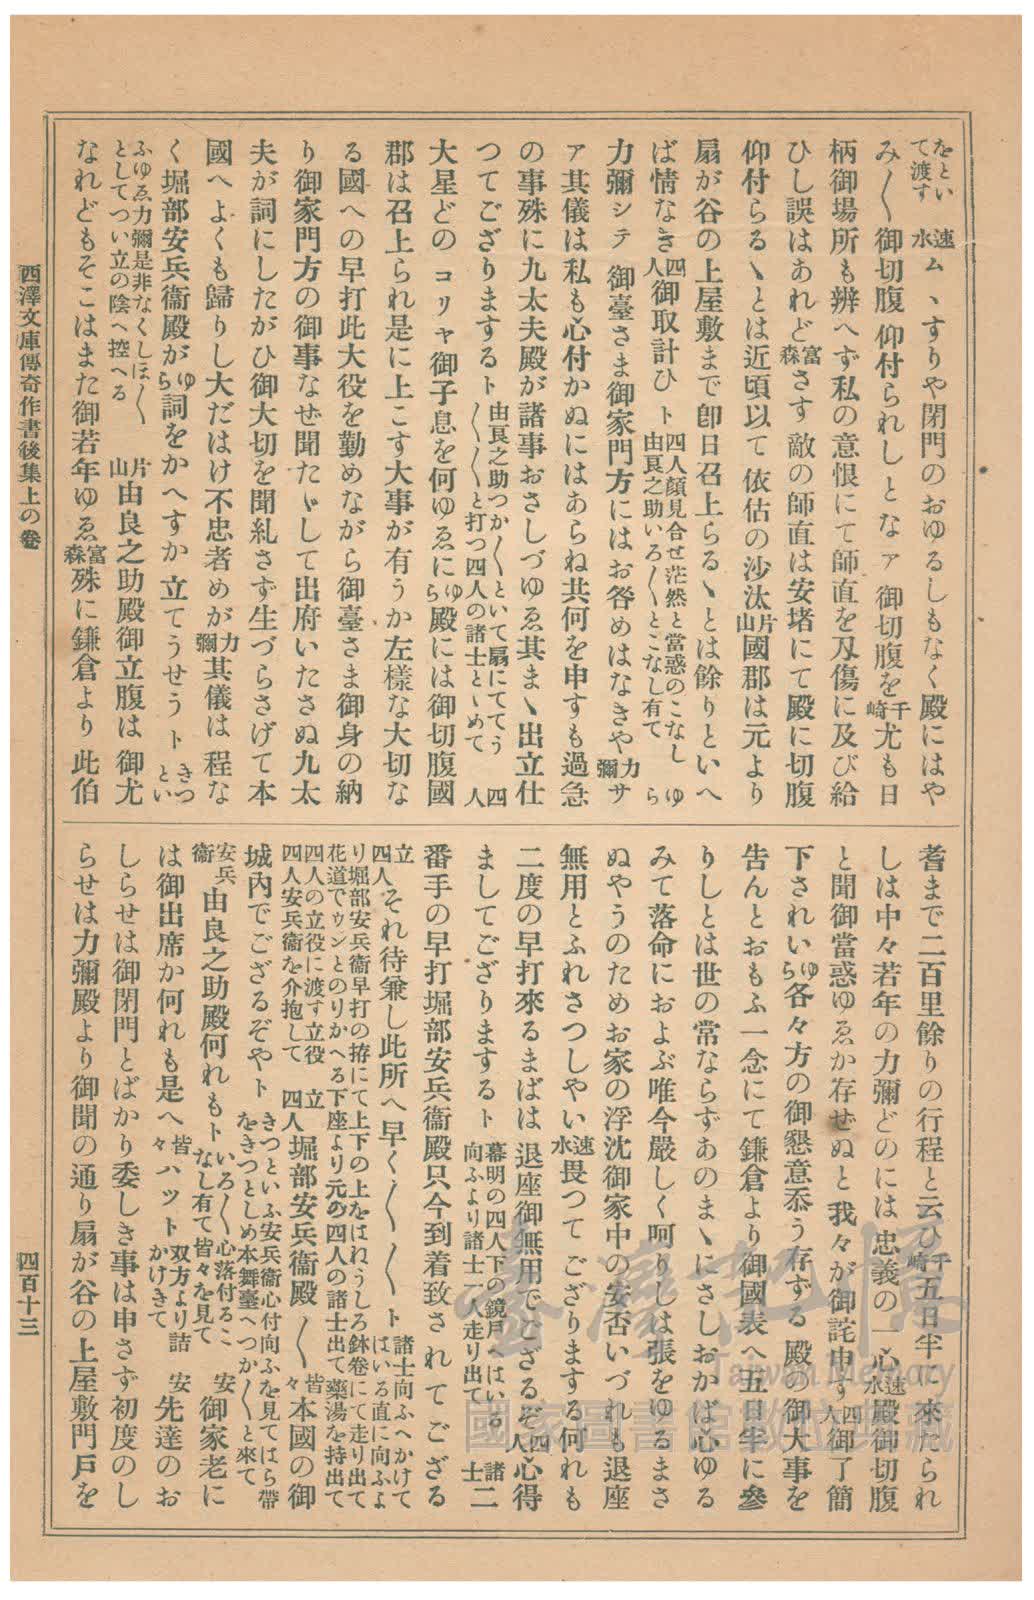 をとい
て渡す 速水 ム丶すりや閉門のおゆるしもなく殿にはや
み〳〵御切腹仰付られしとなァ御切腹を 千崎 尤も日
柄御場所も辨へず私の意恨にて師直を刄傷に及び給
ひし誤はあれど 富森 さす敵の師直は安堵にて殿に切腹
仰付らるゝとは近頃以て依估の沙汰 片山 國郡は元より
扇が谷の上屋敷まで卽日召上らるゝとは餘りといへ
ば情なき 四人 御取計ひ ト 四人顏見合せ茫然と當惑のこなし 由良之助いろ〳〵とこなし有て ゆら
力彌シテ御臺さま御家門方にはお咎めはなきや 力彌 サ
ァ其儀は私も心付かぬにはあらね共何を申すも過急
の事殊に九太夫殿が諸事おさしづゆゑ其まゝ出立仕
つてござりまする ト 由良之助つか〳〵といて扇にててう 〳〵〳〵と打つ四人の諸士とゞめて 四人
大星どのコリャ御子息を何ゆゑに ゆら 殿には御切腹國
郡は召上られ是に上こす大事が有うか左樣な大切な
る國への早打此大役を勤めながら御臺さま御身の納
り御家門方の御事なぜ聞たゞして出府いたさぬ九太
夫が詞にしたがひ御大切を聞糺さず生づらさげて本
國へよくも歸りし大だはけ不忠者めが 力彌 其儀は程な
く堀部安兵衞殿が ゆら 詞をかへすか立てうせうト きつとい
ふゆゑ力彌是非なくしほ〳〵
としてつい立の陰へ控へる 片山 由良之助殿御立腹は御尤
なれどもそこはまた御若年ゆゑ 富森 殊に鎌倉より此伯
耆まで二百里餘りの行程と云ひ 千崎 五日半に來たられ
しは中々若年の力彌どのには忠義の一心 速水 殿御切腹
と聞御當惑ゆゑか存せぬと我々が御詫申す 四人 御了簡
下されい ゆら 各々方の御懇意忝う存ずる殿の御大事を
告んとおもふ一念にて鎌倉より御國表へ五日半に參
りしとは世の常ならずあのまゝにさしおかば心ゆる
みて落命におよぶ唯今嚴しく呵りしは張をゆるまさ
ぬやうのためお家の浮沈御家中の安否いづれも退座
無用とふれさつしやい 速水 畏つてござりまする何れも
二度の早打來るまばは退座御無用でござるぞ 四人 心得
ましてござりまする ト 幕明の四人下の鏡戶へはいる 向ふより諸士一人走り出て 諸士 二
番手の早打堀部安兵衞殿只今到着致されてござる
立四人 それ待兼し此所へ早く〳〵〳〵 ト 諸士向ふへかけて はいる直に向ふよ
り堀部安兵衞早打の拵にて上下の上をはねうしろ鉢卷にて走り出て
花道でウンとのりかへる下座より元の四人の諸士出て藥湯を持出て
四人の立役に渡す立役
四人安兵衞を介抱して 立四人 堀部安兵衞殿〳〵 皆々 本國の御
城內でござるぞや ト きつといふ安兵衞心付向ふを見てはら帶 をきつとしめ本舞臺へつか〳〵と來て
安兵衞 由良之助殿何れも ト いろ〳〵心落付るこ なし有て皆々を見て 安 御家老に
は御出席か何れも是へ 皆々 ハット 双方より詰 かけきて 安 先達のお
しらせは御閉門とばかり委しき事は申さず初度のし
らせは力彌殿より御聞の通り扇が谷の上屋敷門戶を
西澤文庫傳奇作書後集上の卷
四百十三
臺灣記憶
Taiwan Memory
國家圖書館數位典藏